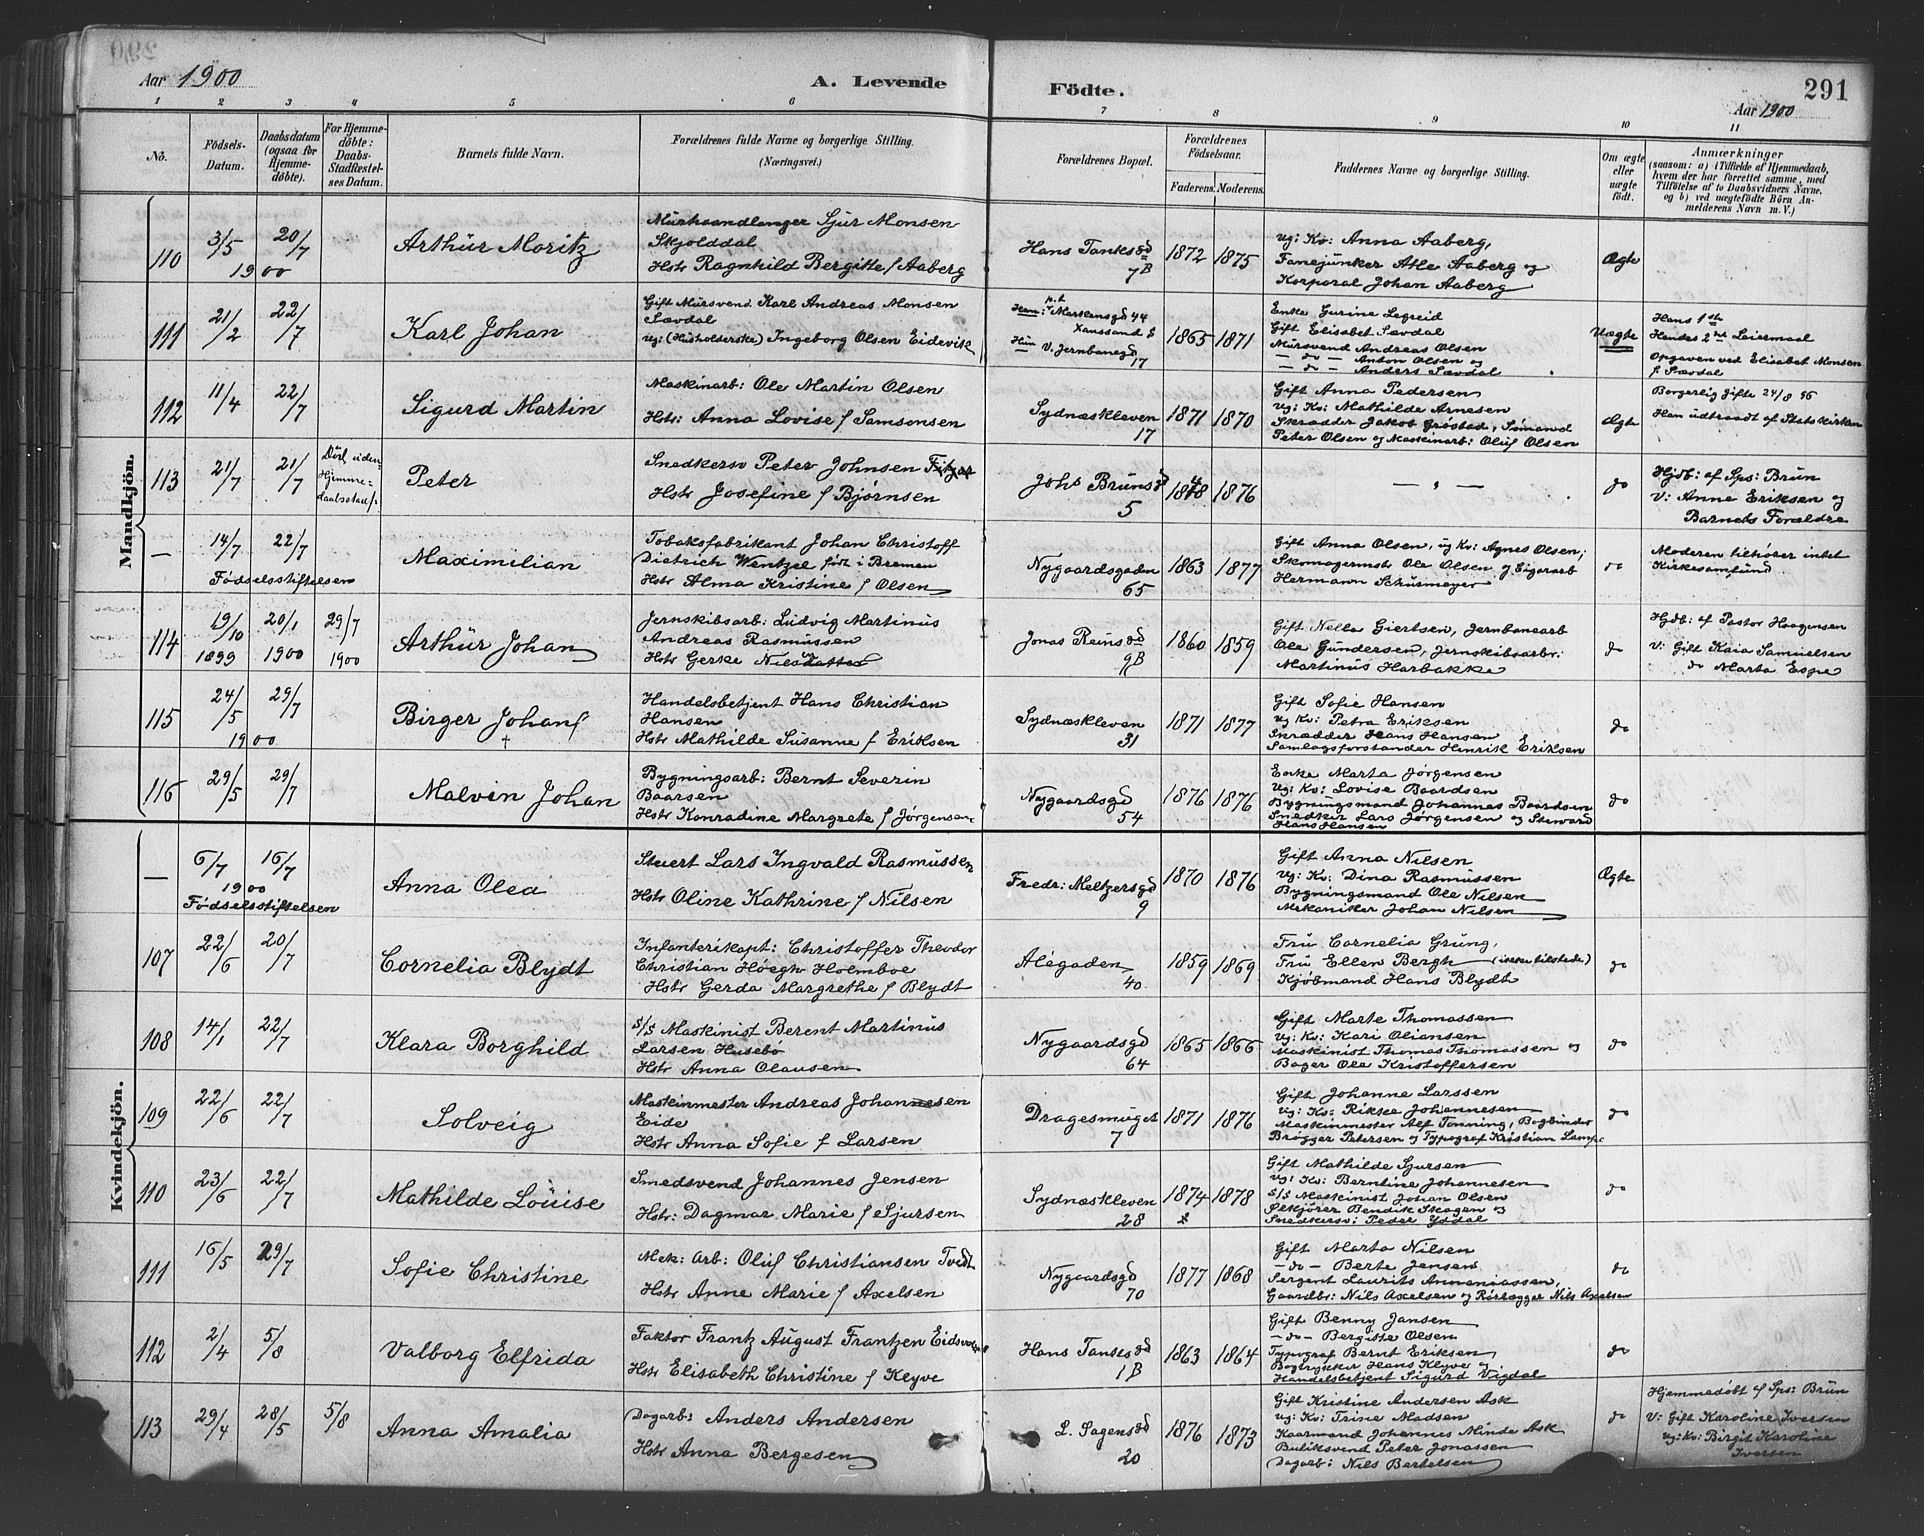 Aar 1900
A. Levende
Födte.
291
Aar 1900
1 2 3 4 5 6 7 8 9 10 11
No.
Födsels-
Datum.
Daabsdatum
(ogsaa for
Hjemme-
döbte).
For Hjemme-
döbte:
Daabs-
Stadfæstel-
ses Datum.
Barnets fulde Navn.
Forældrenes fulde Navne og borgerlige Stilling.
(Næringsvei.)
Forældrenes Bopæl.
Forældrenes
Födselsaar.
Faderens. Moderens.
Faddernes Navne og borgerlige Stilling.
Om ægte
eller
uægte
födt.
Anmærkninger
(saasom: a) i Tilfælde af Hjemmedaab,
hvem der har forrettet samme, med
Tilföielse af to Daabsvidners Navne,
og b) ved uægtefödte Börn An-
melderens Navn m. V.)
Mandkjön.
110 3/5 1900 20/7 Arthur Moritz
Murhaandlanger Sjur Monsen
Skjolddal
Hstr Ragnhild Bergitte f Aaberg
Hans Tanksgd
7B
1872 1875
ug: Kv: Anna Aaberg,
Fanejunker Atle Aaberg og
Korporal Johan Aaberg
Ægte
111 21/2 22/7 Karl Johan
Gift Mursvend Karl Andreas Monsen
Sævdal
ug: (Husholderske) Ingeborg Olsen Eidevik
p.t.
Ham: Markensgd 44
Xanssand S
Hun V. Jernbanegd
17
1865 1871
Enke Gurine Legreid
Gift Elisabet Sævdal
Mursvend Andreas Olsen
— do — Anton Olsen og
— do — Anders Sævdal
Uægte
Hans 1ste
Hendes 2det Leiermaal
Opgaven ved Elisabet Monsen
f Sævdal
112 11/4 22/7 Sigurd Martin
Maskinarb: Ole Martin Olsen
Hstr: Anna Lovise f Samsonsen
Sydnæskleven
17
1871 1870
Gift Anna Pedersen
ug: Kv: Mathilde Arnesen
Skrædder Jakob Grøstad, Sømand
Peter Olsen og Maskinarb: Oluf Olsen
Ægte
Borgerlig gifte 24/8 96
Han udtraadt af Statskirken
113 21/7 21/7 Död uden
Hjemme-
daabsstadf:
Peter
Snedkersv Peter Johnsen Fitjar
Hstr Josefine f Bjørnsen
Johs Brunsgd
5
1876
— " —
do
Hjdb: af Sps: Brun
V: Anne Eriksen og
Barnets Forældre
— 14/7 22/7
Födselsstiftelsen
Maximilian
Tobaksfabrikant Johan Christoff
Dietrich Wentzel født i Bremen
Hstr Alma Kristine f Olsen
Nygaardsgaden
65
1863 1877
Gift Anna Olsen, ug Kv: Agnes Olsen;
Skomagermstr Ole Olsen og Eigararb
Hermann Schusmeyer
do
Moderen tilhører intet
Kirkesamfund
114 19/10 1899 20/1 1900 29/7 1900 Arthur Johan
Jernskibsarb: Ludvig Martinus
Andreas Rasmussen
Hstr Gerke
Jonas Reinsgd
9B
1860 1859
Gift Nella Giertsen, Jernbanearb
Ole Gundersen, Jernskibsarb:
Martinus Harbakke
do
Hjdb: af Pastor Haagensen
V: Gift Kaia Samuelsen
do Marta Espe
115 24/5 1900 29/7 Birger Johan
†
Handelsbetjent Hans Christian
Hansen
Hstr Mathilde Susanne f Eriksen
Sydnæskleven
31
1871 1877
Gift Sofie Hansen
ug Kv: Petra Eriksen
Skrædder Hans Hansen
Samlagsforstander Henrik Eriksen
do
116 29/5 29/7 Malvin Johan
Bygningsarb: Bernt Severin
Baarsen
Hstr Konradine Margrete f Jørgensen
Nygaardsgd
54
1876 1876
Enke Marta Jørgensen
Ug: Kv: Lovise Baardsen
Bygningsmand Johannes Baardsen
Snedker Lars Jørgensen og Steward
Hans Hansen
do
Kvindekjön.
— 6/7 1900 16/7
Födselsstiftelsen
Anna Olea
Stuert Lars Ingvald Rasmussen
Hstr Oline Kathrine f Nilsen
Fredr: Meltzersgd
9
1870 1876
Gift Anna Nilsen
ug: Kv: Dina Rasmussen
Bygningsmand Ole Nilsen
Mekaniker Johan Nilsen
Ægte
107 22/6 20/7 Cornelia Blydt
Infanterikapt: Christoffer Theodor
Christian Høegh Holmboe
Hstr Gerda Margrethe f Blydt
Alégaden
40
1859 1869
Fru Cornelia Grung,
Fru Ellen Bergh (ikke tilstede)
Kjøbmand Hans Blydt
do
108 14/1 22/7 Klara Borghild
S/S Maskinist Berent Martinus
Larsen Husebö
Hstr Anna Olausen
Nygaardsgd
64
1865 1866
Gift Marte Thomassen
ug: Kv: Kari Oliansen
Maskinist Thomas Thomassen og
Bager Ole Kristoffersen
do
109 22/6 22/7 Solveig
Maskinmester Andreas Johannesen
Eide
Hstr Anna Sofie f Larsen
Dragesmuget
7
1871 1876
Gift Johanne Larssen
ug: Kv: Rikke Johannesen
Maskinmester Alf Tønning, Bogbinder
Brøgger Petersen og Typograf Kristian Lampe
do
110 23/6 22/7 Mathilde Louise
Smedsvend Johannes Jensen
Hstr: Dagmar Marie f Sjursen
Sydnæskleven
28
1874 1878
Gift Mathilde Sjursen
ug: Kv: Berntine Johannesen
S/S Maskinist Johan Olsen
Ølkjører Bendik Skogen og
Snedkersv: Peder Yddal
do
111 16/5 29/7 Sofie Christine
Mek: Arb: Oluf Christiansen Tvedt
Hstr Anne Marie f Axelsen
Nygaardsgd
70
1877 1868
Gift Marta Nilsen
— do — Berte Jensen
Sergent Laurits Annaniassen,
Gaardbr: Nils Axelsen og Rørlægger Nils Axelsen
do
112 2/4 5/8 Valborg Elfrida
Faktor Frantz August Frantzen Eidsvold
Hstr Elisabeth Christine f Klyve
Hans Tanksgd
1B
1863 1864
Gift Benny Jansen
— do — Bergitte Olsen
Typograf Bernt Eriksen
Bogtrykker Hans Klyve og
Handelsbetjent Sigurd Vigdal
do
113 29/4 28/5 5/8 Anna Amalia
Dagarb: Anders Andersen
Hstr Anna Bergesen
L. Sagensgd
20
1876 1873
Gift Kristine Andersen Ask
ug: Kv: Trine Madsen
Kaarmand Johannes Minde Ask
Butiksvend Peter Jonassen
Dagarb: Nils Bertelsen
do
Hjemmedöbt af Sps: Brun
V: Gift Karoline Iversen
ug: Kv: Birgit Karoline
Iversen